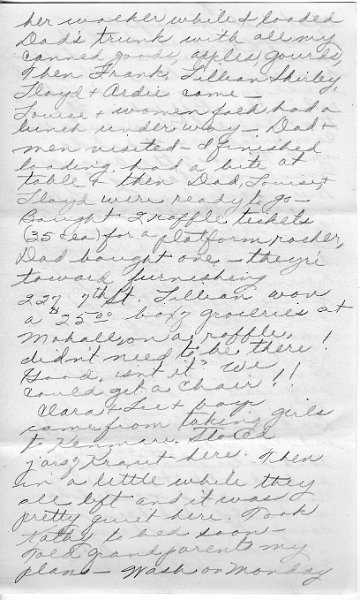 her walker while I loaded
Dad's trunk with all my
canned goods, apples, gourds,
Then Frank, Lillian Shirley,
Floyd & Ardie came –
Louise & women folk had a
lunch under way – Dad &
men visited – I finished
loading, had a bite at
table & then Dad, Louise &
Lloyd were ready to go –
Bought 2 raffle tickets
(35¢ ea) for a platform rocker,
Dad bought one – they're
toward furnishing
227 7th St. Lillian won
a $25.00 box groceries at
Mohall, on a raffle,
didn't need to be there!
Good, isn't it" We
could get a chair!!
Clara & Lee & boys
came from taking girls
to Kenmare. Stored
jars Kraut here. Then
in a little while they
all left and it was
pretty quiet here. Took
to bed soon –
Told grandparents my
plans – Wash on Monday